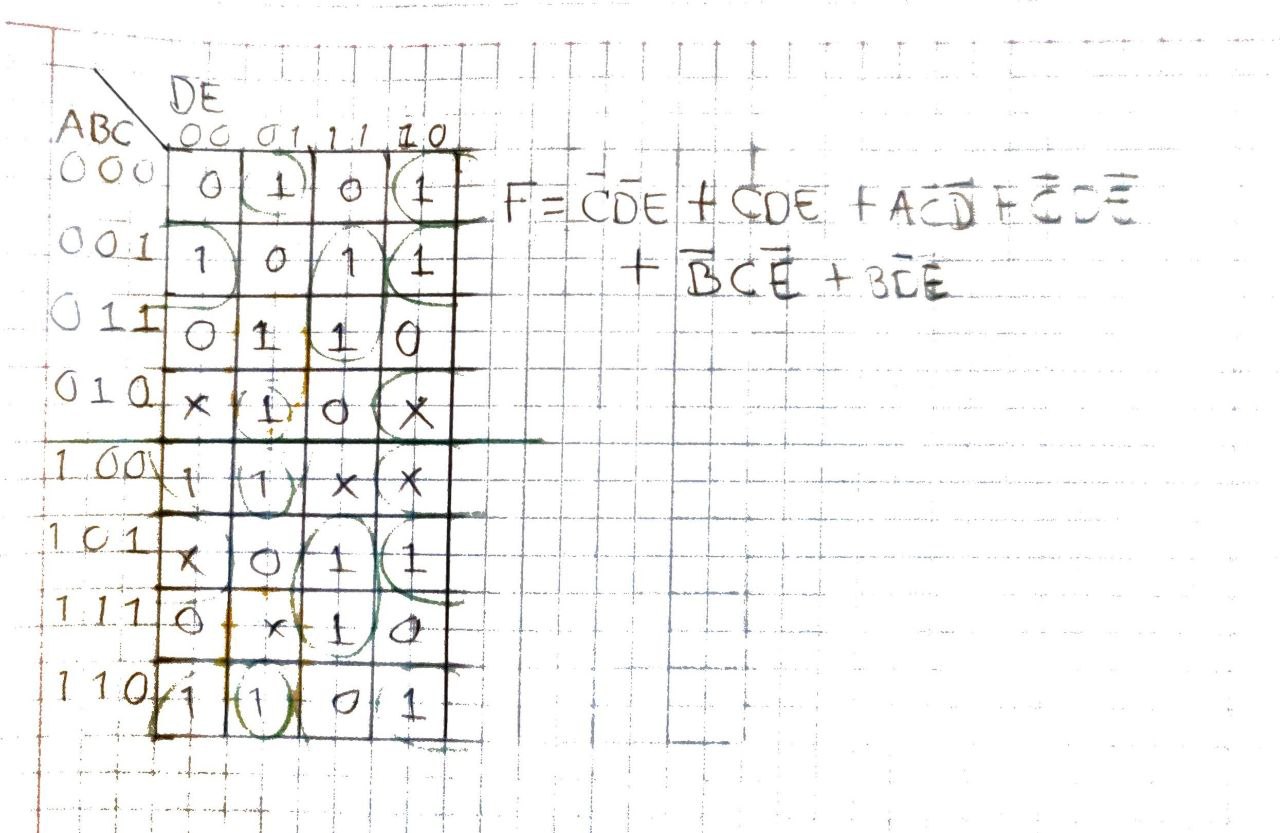 DE
ABC 00 01 11 10
000 0 1 0 1
001 1 0 1 1
011 0 1 1 0
010 x 1 0 x
100 1 1 x x
101 x 0 1 1
111 0 x 1 0
110 1 1 0 1
F = C̅D̅E + CDE + AC̅D̅ + C̅DE̅
+ B̅CE̅ + BC̅E̅